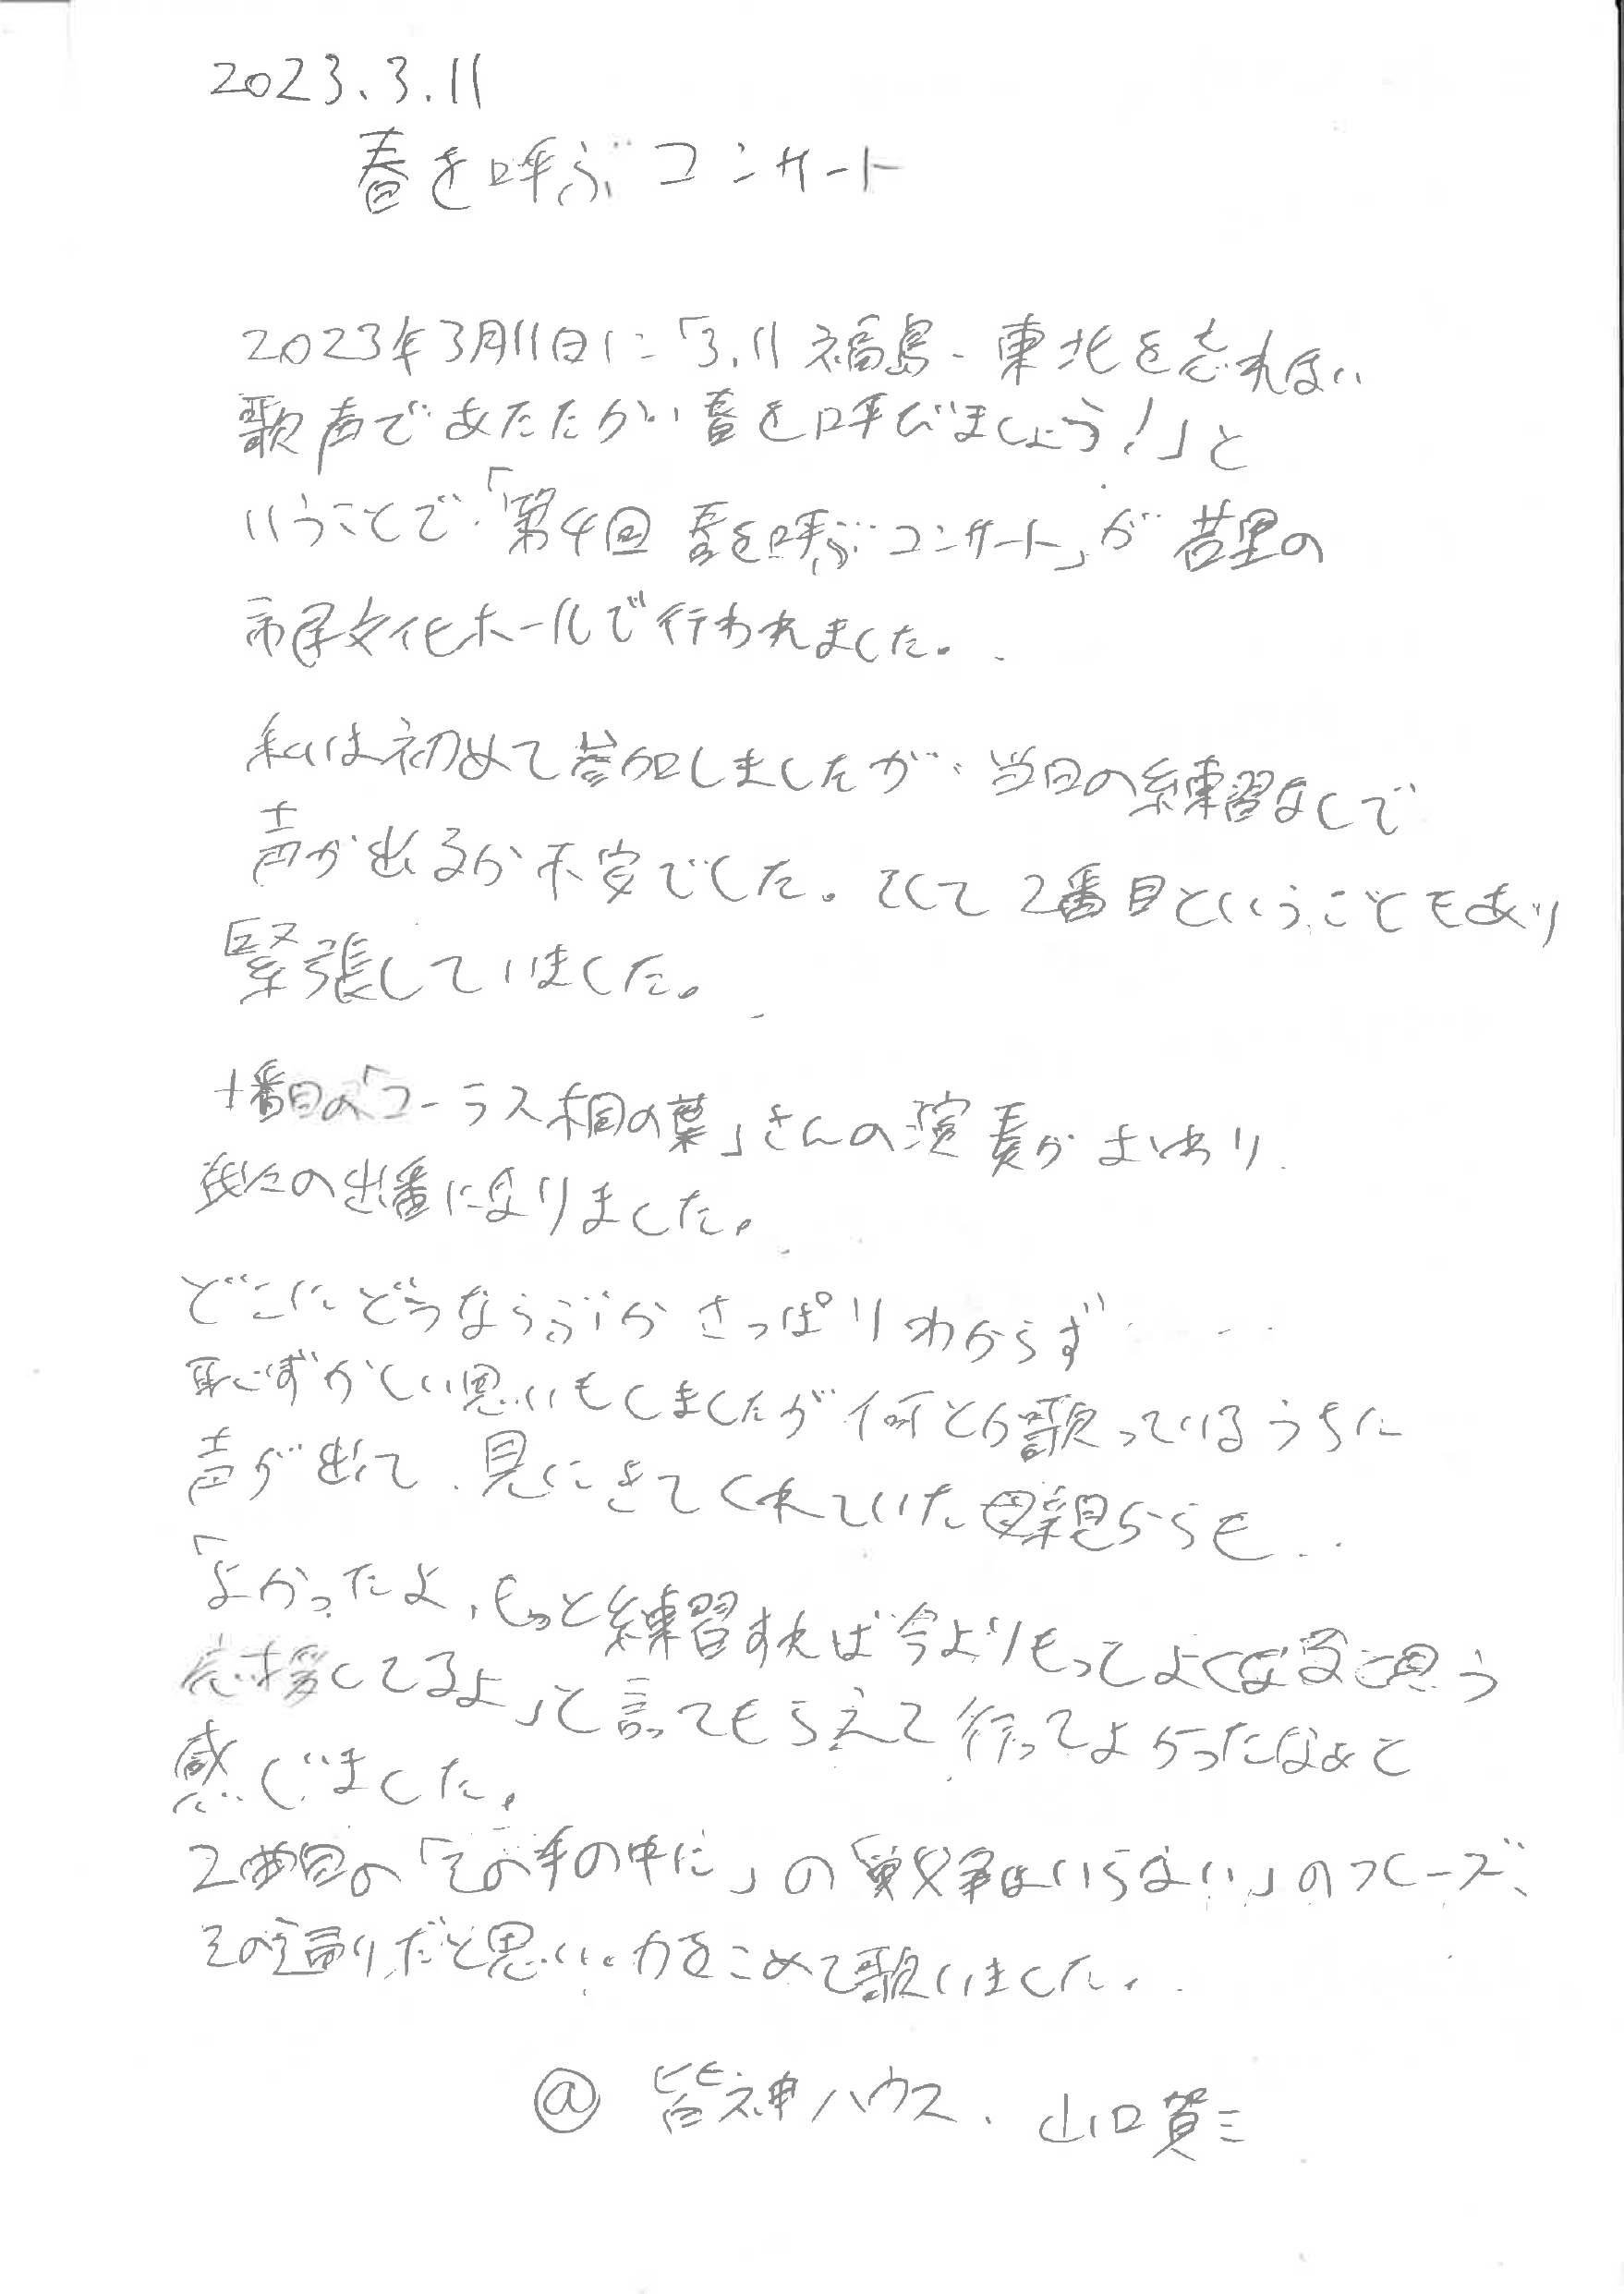 2023.3.11
春を呼ぶコンサート
2023年3月11日に「3.11福島・東北を忘れない
歌声であたたかい春を呼びましょう!」と
いうことで「第4回 春を呼ぶコンサート」が若里の
市民文化ホールで行われました。
私は初めて参加しましたが、当日の練習なしで
声が出るか不安でした。そして2番目ということもあり
緊張していました。
1番目の「コーラス桐の葉」さんの演奏がおわり
我々の出番になりました。
どこにどうならぶかさっぱりわからず
恥ずかしい思いもしましたが何とか歌っているうちに
声が出て、見にきてくれていた母親からも
「よかったよ、もっと練習すれば今よりもってよくなると思う
応援してるよ」と言ってもらえて行ってよかったなあと
感じました。
2曲目の「その手の中に」の「戦争はいらない」のフレーズ、
その通りだと思い、力をこめて歌いました。
@ 皆神ハウス、山口賢三